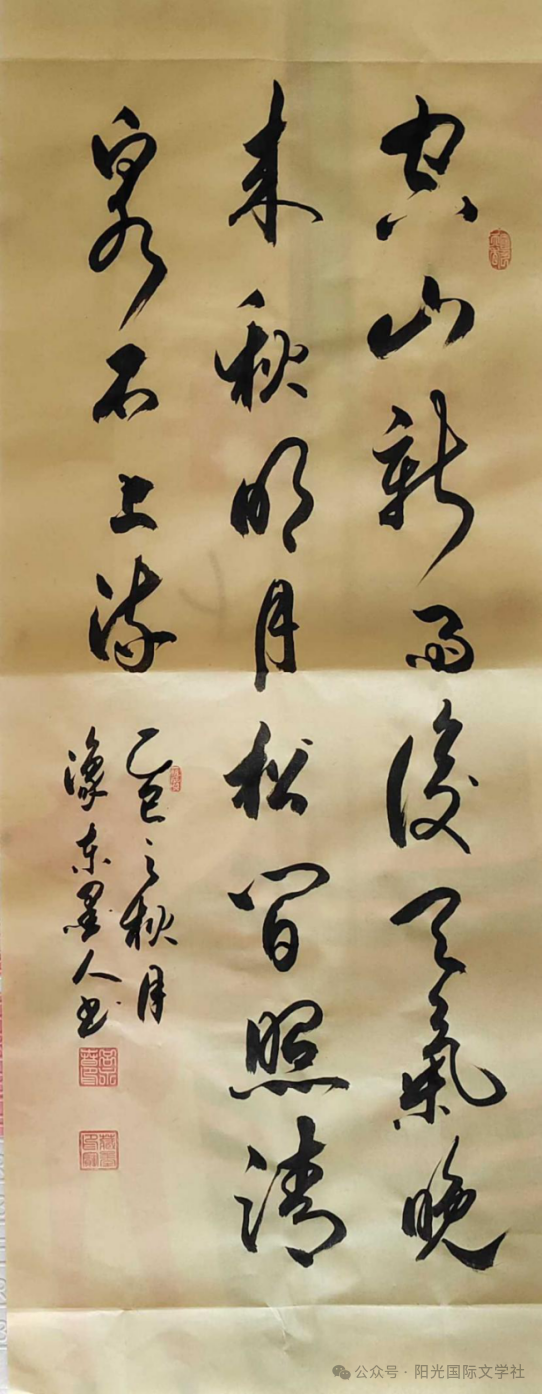 空山新雨後天氣晚
来秋明月松間照清
泉石上流
乙巳之秋月
濠東墨人书
公众号 · 阳光国际文学社